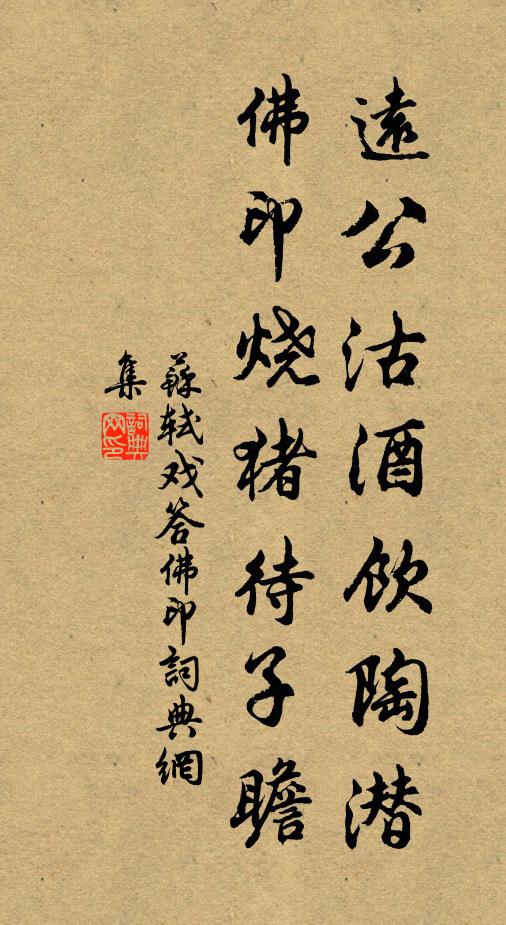 遠公沽酒飲陶潜
佛印烧猪待子瞻
蘇軾戏答佛印詞典網
集
詞典网印